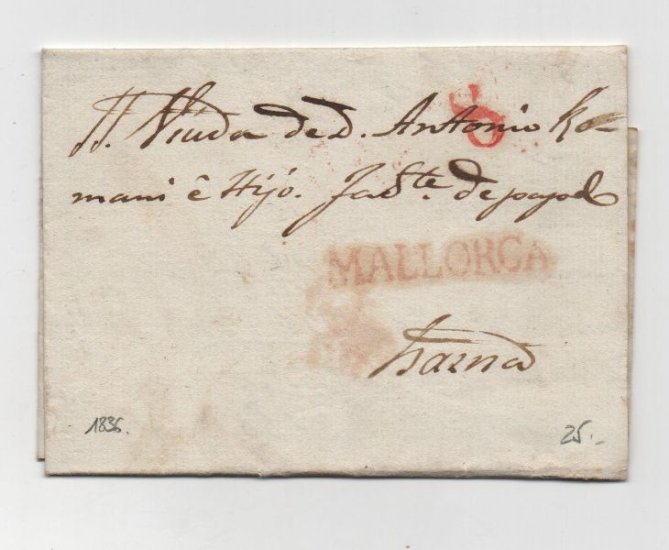 Viuda de d. Antonio Ro-
mani è Hijo. Fabte. de papel
MALLORCA
Barna
1836.
25.-